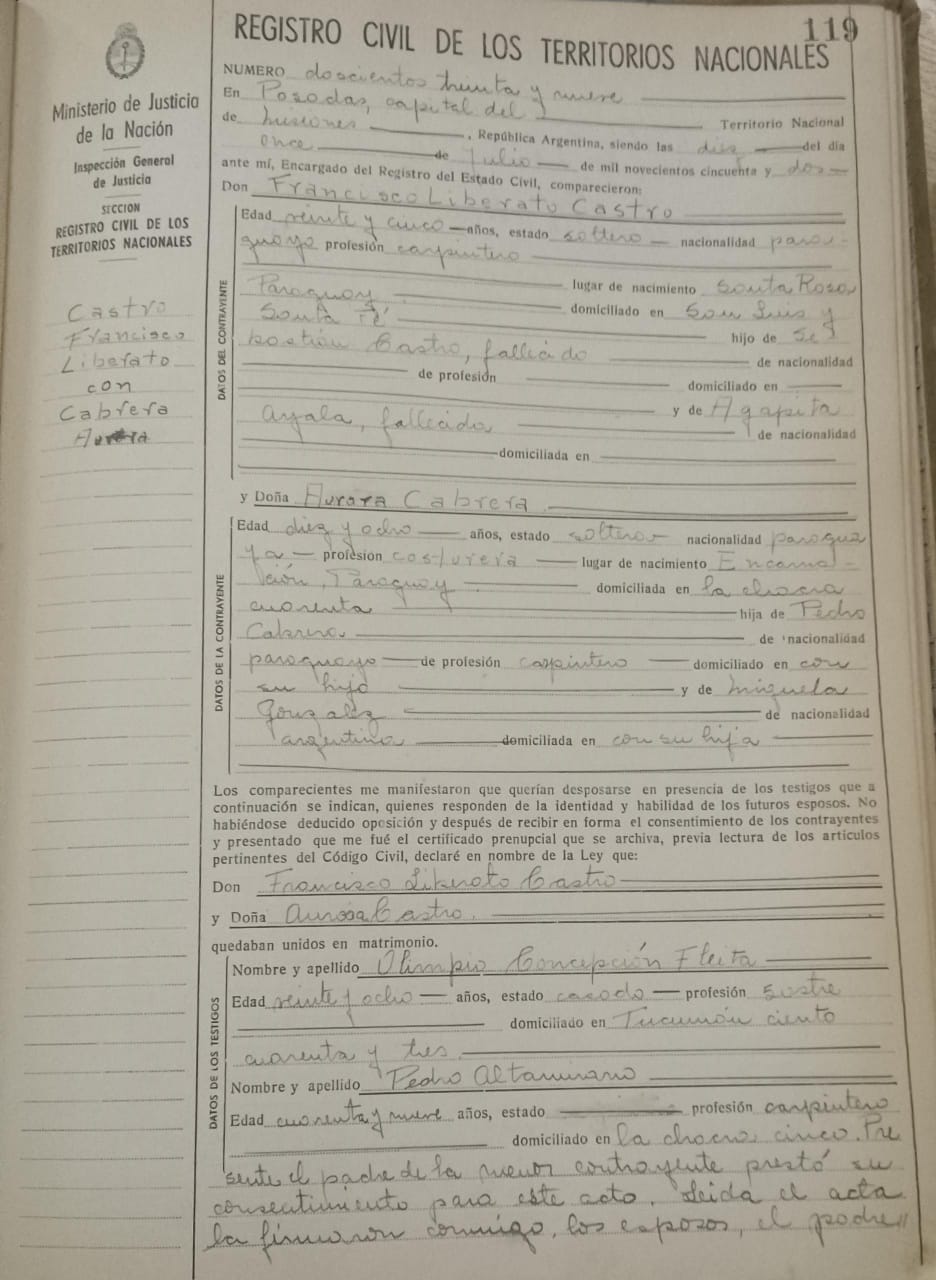 119
REGISTRO CIVIL DE LOS TERRITORIOS NACIONALES
Ministerio de Justicia
de la Nación
Inspección General
de Justicia
SECCION
REGISTRO CIVIL DE LOS
TERRITORIOS NACIONALES
Castro
Francisco
Liberato
con
Cabrera
Aurora
NUMERO doscientos treinta y nueve
En Posadas, capital del Territorio Nacional
de Misiones, República Argentina, siendo las diez del día
once de Julio de mil novecientos cincuenta y dos
ante mí, Encargado del Registro del Estado Civil, comparecieron:
Don Francisco Liberato Castro
DATOS DEL CONTRAYENTE
Edad veinte y cinco años, estado soltero nacionalidad para-
guaya profesión carpintero
lugar de nacimiento Santa Rosa
Paraguay domiciliado en San Luis y
Santa Fé hijo de Se
bastián Castro, fallecido de nacionalidad
de profesión domiciliado en
y de Agapita
Ayala, fallecida de nacionalidad
domiciliada en
y Doña Aurora Cabrera
DATOS DE LA CONTRAYENTE
Edad diez y ocho años, estado soltera nacionalidad paragua
ya profesión costurera lugar de nacimiento Encarna-
ción, Paraguay domiciliada en la chacra
cuarenta hija de Pedro
Cabrera de nacionalidad
paraguayo de profesión carpintero domiciliado en con
su hijo y de Miguela
Gonzalez de nacionalidad
argentina domiciliada en con su hija
Los comparecientes me manifestaron que querían desposarse en presencia de los testigos que a
continuación se indican, quienes responden de la identidad y habilidad de los futuros esposos. No
habiéndose deducido oposición y después de recibir en forma el consentimiento de los contrayentes
y presentado que me fué el certificado prenupcial que se archiva, previa lectura de los artículos
pertinentes del Código Civil, declaré en nombre de la Ley que:
Don Francisco Liberato Castro
y Doña Aurora Castro
quedaban unidos en matrimonio.
DATOS DE LOS TESTIGOS
Nombre y apellido Olimpio Concepción Fleita
Edad veinte y ocho años, estado casado profesión sastre
domiciliado en Tucumán ciento
cuarenta y tres
Nombre y apellido Pedro Altamirano
Edad cuarenta y nueve años, estado profesión carpintero
domiciliado en la chacra cinco. Pre
sente el padre de la menor contrayente prestó su
consentimiento para este acto. Leida el acta
la firmaron conmigo, los esposos, el padre//